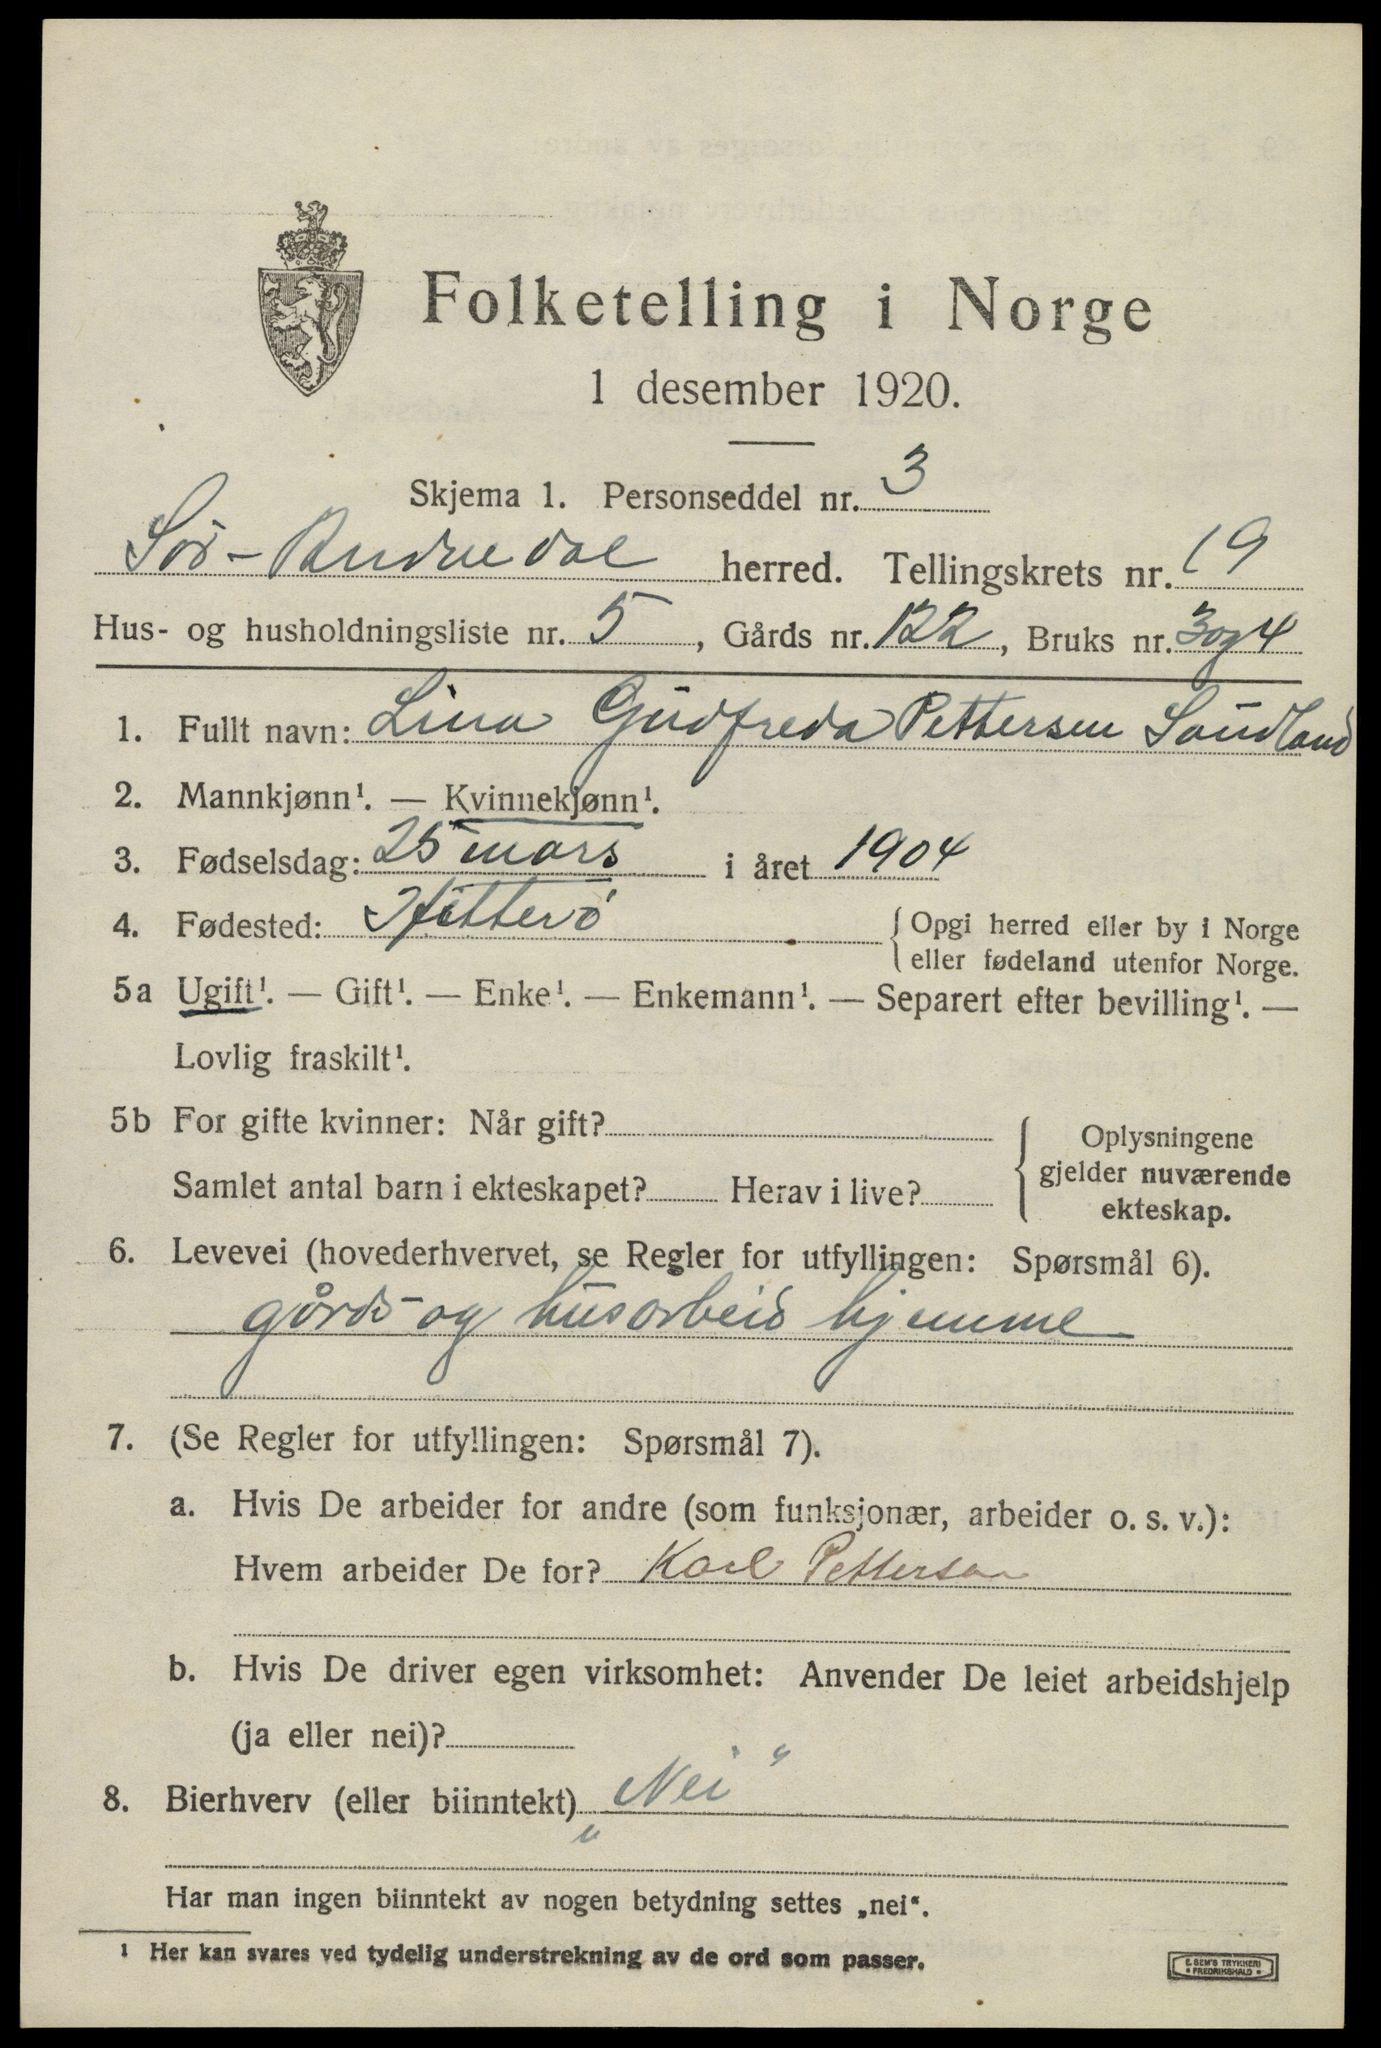 Folketelling i Norge
1 desember 1920.
Skjema 1. Personseddel nr. 3
Sør-Audnedal herred. Tellingskrets nr. 19
Hus- og husholdningsliste nr. 5, Gårds nr. 122, Bruks nr. 3 og 4
1. Fullt navn: Lina Gudfreda Pettersen Sandland
2. Mannkjønn¹. — Kvinnekjønn¹.
3. Fødselsdag: 25 mars i året 1904
4. Fødested: Hitterö { Opgi herred eller by i Norge
eller fødeland utenfor Norge.
5a Ugift¹. — Gift¹. — Enke¹. — Enkemann¹. — Separert efter bevilling¹. —
Lovlig fraskilt¹.
5b For gifte kvinner: Når gift? { Oplysningene
gjelder nuværende
Samlet antal barn i ekteskapet? Herav i live? ekteskap.
6. Levevei (hovederhvervet, se Regler for utfyllingen: Spørsmål 6).
gårds- og husarbeid hjemme
7. (Se Regler for utfyllingen: Spørsmål 7).
a. Hvis De arbeider for andre (som funksjonær, arbeider o. s. v.):
Hvem arbeider De for? Karl Pettersen
b. Hvis De driver egen virksomhet: Anvender De leiet arbeidshjelp
(ja eller nei)?
8. Bierhverv (eller biinntekt) „Nei“
Har man ingen biinntekt av nogen betydning settes „nei“.
¹ Her kan svares ved tydelig understrekning av de ord som passer.
E. SEM'S TRYKKERI
• FREDRIKSHALD •